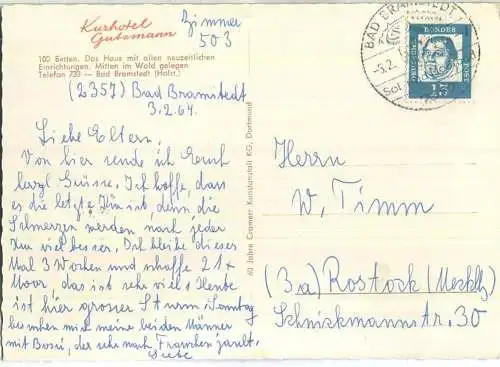 Kurhotel
Gutsmann
Zimmer
503
100 Betten. Das Haus mit allen neuzeitlichen
Einrichtungen. Mitten im Wald gelegen
Telefon 733 — Bad Bramstedt (Holst.)
(2357) Bad Bramstedt
3.2.64.
Liebe Eltern,
Von hier sende ich Euch
herzl. Grüsse. Ich hoffe, dass
es die letzte Kur ist, denn die
Schmerzen werden nach jeder
Kur viel besser. Ich bleibe dieses
Mal 3 Wochen und schaffe 21 x
Moor, das ist sehr viel. Heute
ist hier grosser Sturm. Sonntag
besuchen mich meine beiden Männer
mit Bossi, der sehr nach Frauchen jault.
60 Jahre Cramers Kunstanstalt KG, Dortmund
BAD BRAMSTEDT
-5.2.
DEUTSCHE BUNDESPOST
15
Herrn
W. Timm
(3a) Rostock (Meckl)
Schnickmannstr. 30